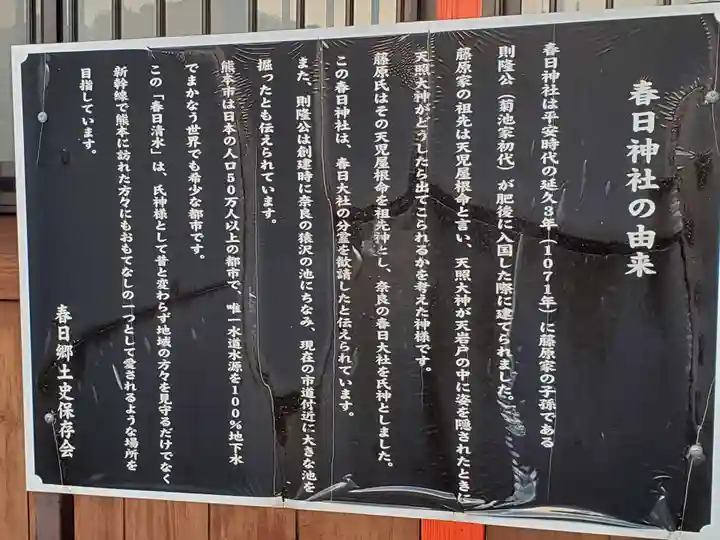 春日神社の由来
春日神社は平安時代の延久3年(1071年)に藤原家の子孫である
則隆公(菊池家初代)が肥後に入国した際に建てられました。
藤原家の祖先は天児屋根命と言い、天照大神が天岩戸の中に姿を隠されたときに
天照大神がどうしたら出てこられるかを考えた神様です。
藤原氏はその天児屋根命を祖先神とし、奈良の春日大社を氏神としました。
この春日神社は、春日大社の分霊を勧請したと伝えられています。
また、則隆公は創建時に奈良の猿沢の池にちなみ、現在の市道付近に大きな池を
掘ったとも伝えられています。
熊本市は日本の人口50万人以上の都市で、唯一水道水源を100%地下水
でまかなう世界でも希少な都市です。
この「春日清水」は、氏神様として昔と変わらず地域の方々を見守るだけでなく
新幹線で熊本に訪れた方々にもおもてなしの一つとして愛されるような場所を
目指しています。
春日郷土史保存会